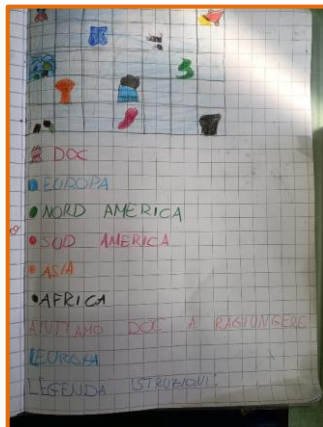 DOC
EUROPA
NORD AMERICA
SUD AMERICA
ASIA
AFRICA
AIUTIAMO DOC A RAGIUNGERE
L'EUROPA
LEGENDA ISTRUZIONI: